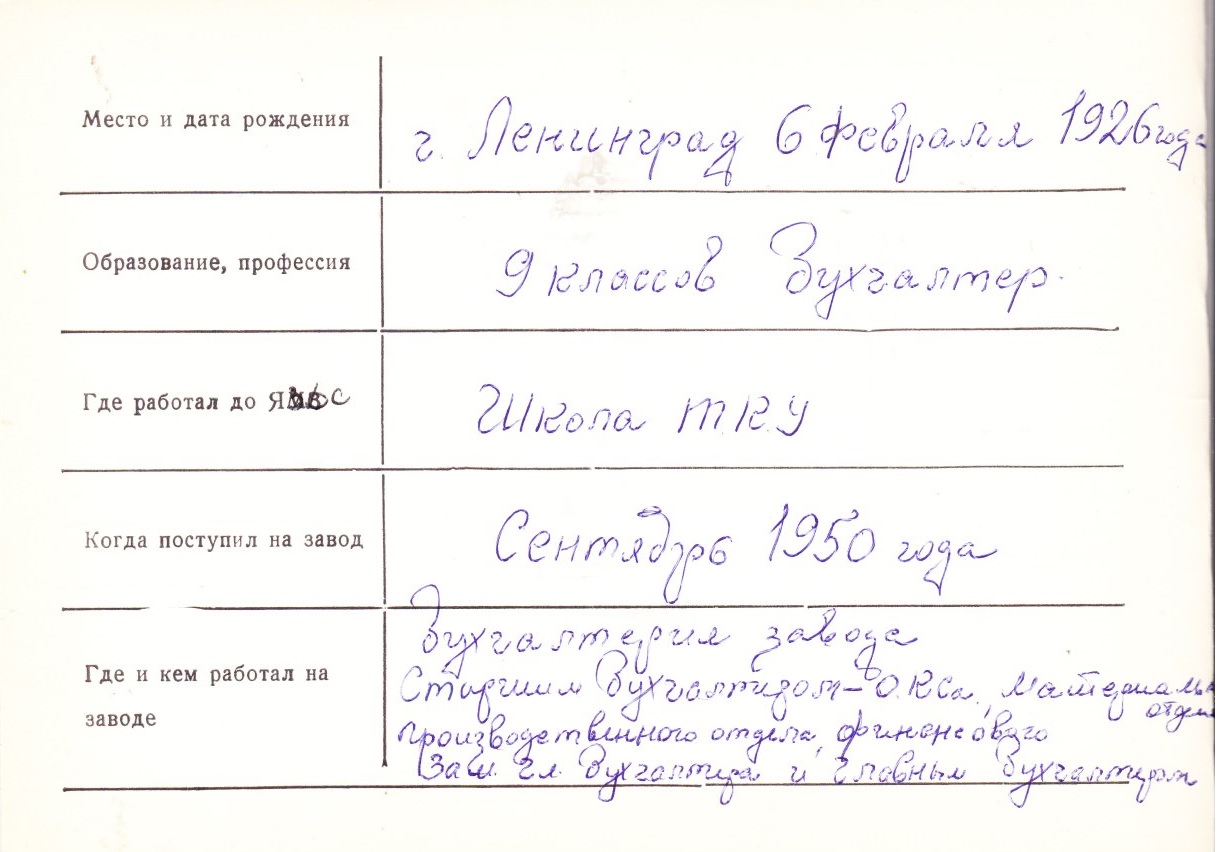 Место и дата рождения
г. Ленинград 6 февраля 1926 года
Образование, профессия
9 классов Бухгалтер.
Где работал до
Школа Т.К.У
Когда поступил на завод
Сентябрь 1950 года
Где и кем работал на
заводе
Бухгалтерия завода
Старшим бухгалтером - ОКСа,
отдела
производственного отдела, финансового
Зам. гл. бухгалтера и главным бухгалтером